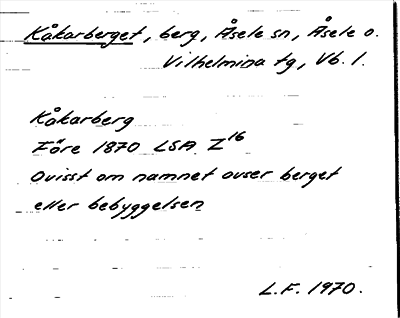 Kåkarberget, berg, Åsele sn, Åsele o.
Vilhelmina tg, Vb. l.
Kåkarberg
Före 1870 LSA Z16
Ovisst om namnet avser berget
eller bebyggelsen
L.F. 1970.